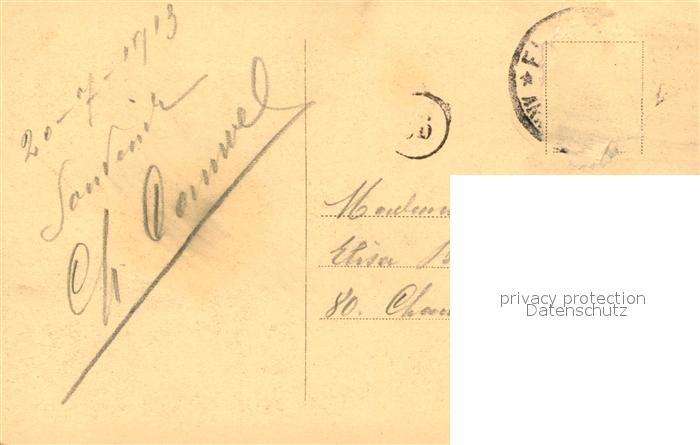 20-7-1913
Souvenir
Ch
Madame
Elisa B
80. Chau
privacy protection
Datenschutz